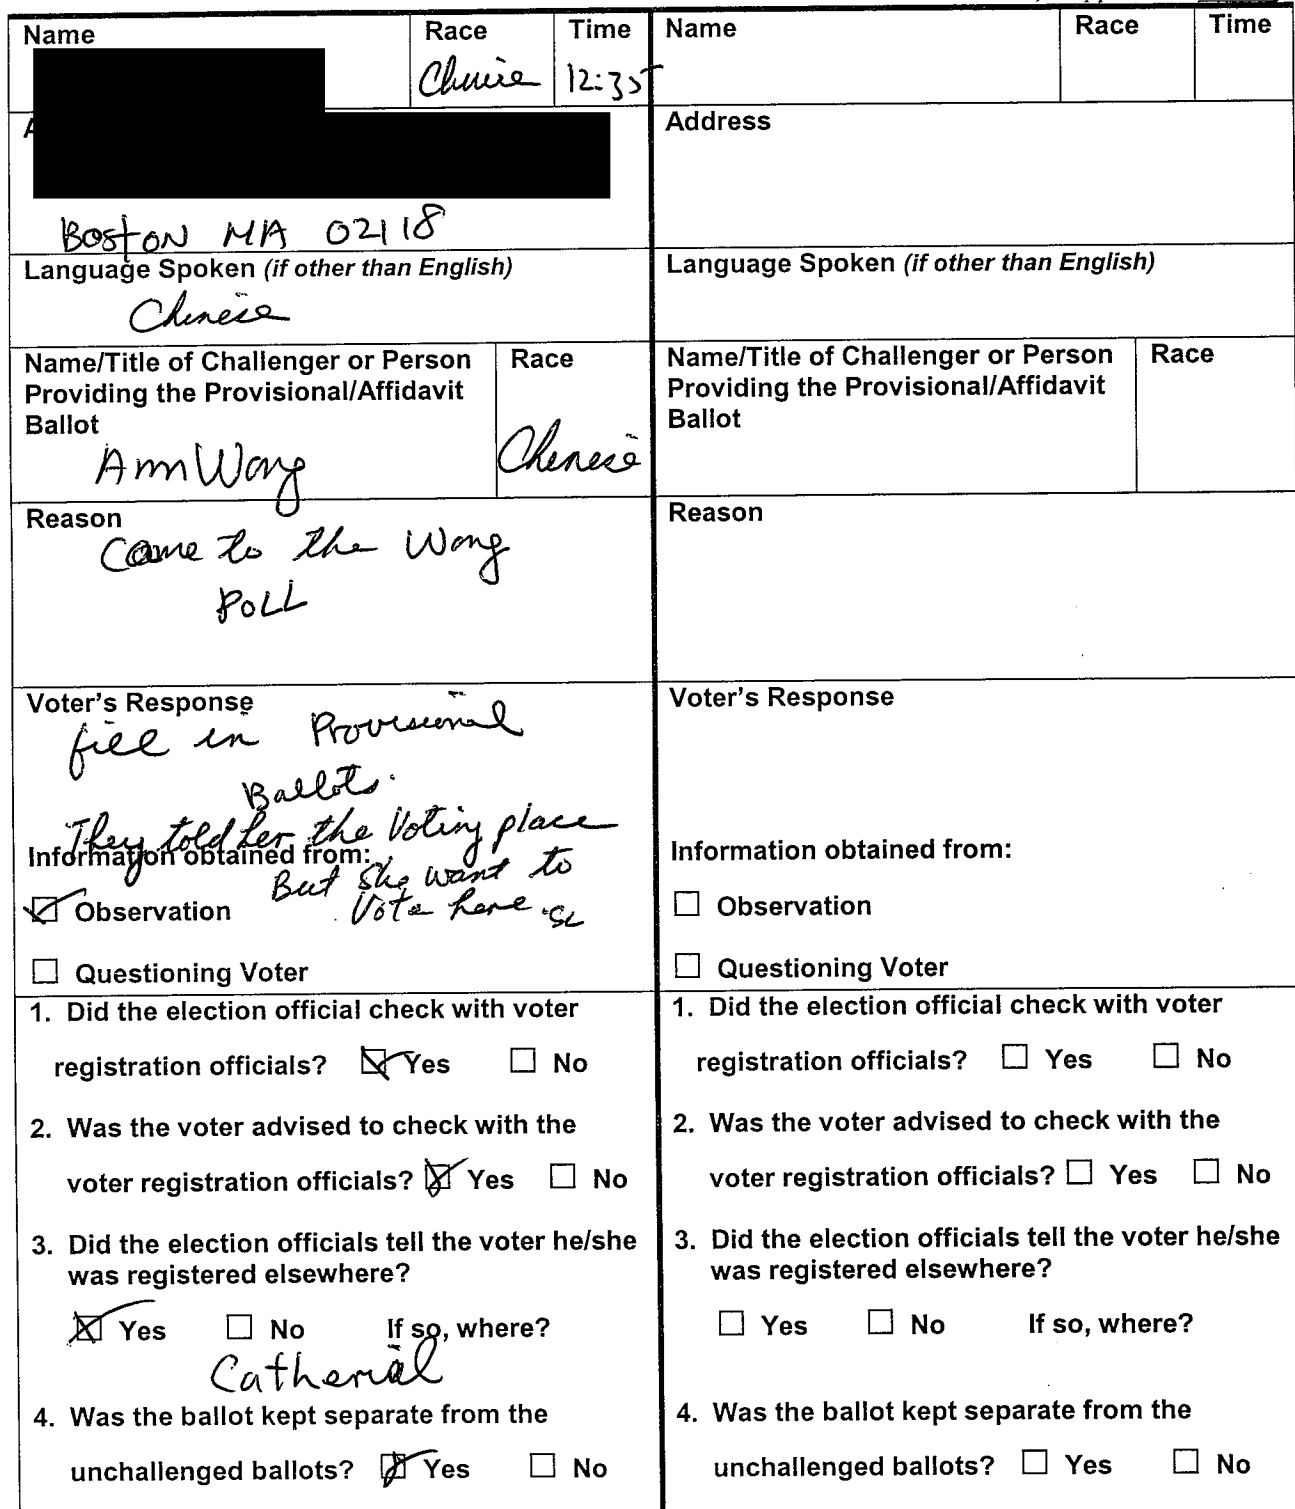 Name Race Time
Chinese 12:35
BOSTON MA 02118
Language Spoken (if other than English)
Chinese
Name/Title of Challenger or Person Race
Providing the Provisional/Affidavit
Ballot
Ann Wong Chenese
Reason
Came to the Wong
POLL
Voter's Response
fill in Provisional
Ballots.
They told her the Voting place
Information obtained from:
But she want to
Vote here. SL
☑ Observation
☐ Questioning Voter
1. Did the election official check with voter
registration officials? ☑ Yes ☐ No
2. Was the voter advised to check with the
voter registration officials? ☑ Yes ☐ No
3. Did the election officials tell the voter he/she
was registered elsewhere?
☑ Yes ☐ No If so, where?
Catherial
4. Was the ballot kept separate from the
unchallenged ballots? ☑ Yes ☐ No
Name Race Time
Address
Language Spoken (if other than English)
Name/Title of Challenger or Person Race
Providing the Provisional/Affidavit
Ballot
Reason
Voter's Response
Information obtained from:
☐ Observation
☐ Questioning Voter
1. Did the election official check with voter
registration officials? ☐ Yes ☐ No
2. Was the voter advised to check with the
voter registration officials? ☐ Yes ☐ No
3. Did the election officials tell the voter he/she
was registered elsewhere?
☐ Yes ☐ No If so, where?
4. Was the ballot kept separate from the
unchallenged ballots? ☐ Yes ☐ No